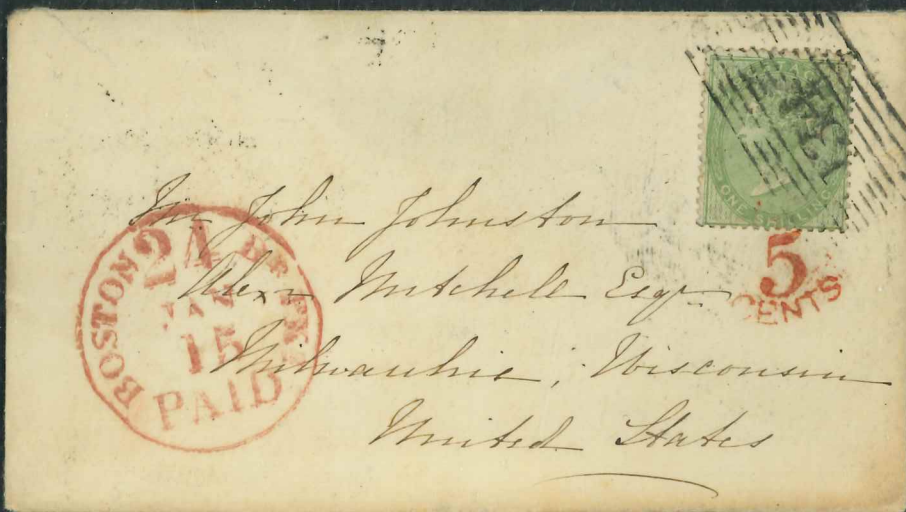 POSTAGE
ONE SHILLING
5
CENTS
Mr John Johnston
Alexr Mitchell Esqr
Milwaukie, Wisconsin
United States
BOSTON BR. PKT
24
JAN
15
PAID